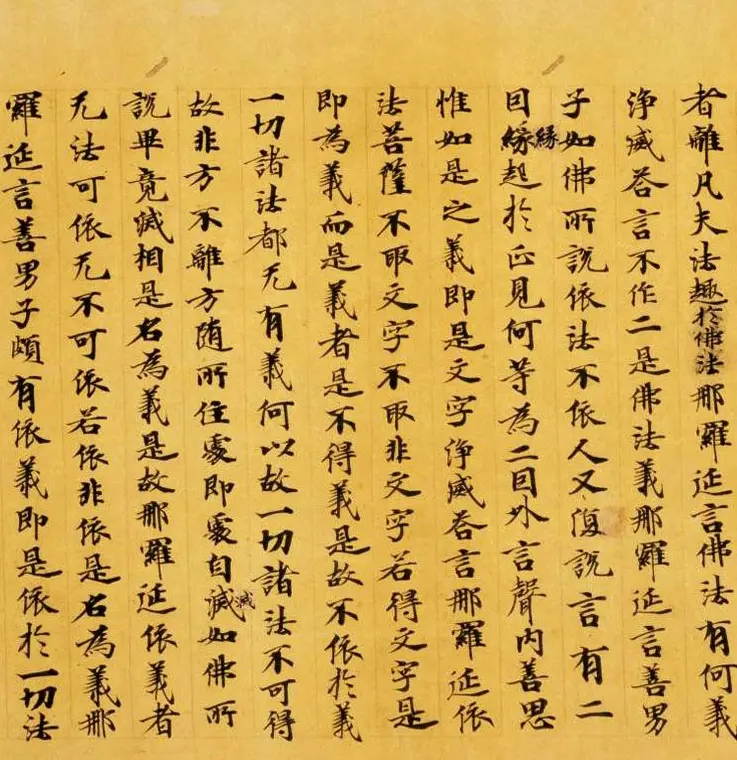 者離凡夫法趣於佛法那羅延言佛法有何義
浄威答言不作二是佛法義那羅延言善男
子如佛所說依法不依人又復說言有二
囙緣緣起於正見何等為二囙外言聲內善思
惟如是之義即是文字浄威答言那羅延依
法菩薩不取文字不取非文字若得文字是
即為義而是義者是不得義是故不依於義
一切諸法都无有義何以故一切諸法不可得
故非方不離方随所住處即處自滅滅如佛所
說畢竟滅相是名為義是故那羅延依義者
无法可依无不可依若依非依是名為義那
羅延言善男子頗有依義即是依於一切法